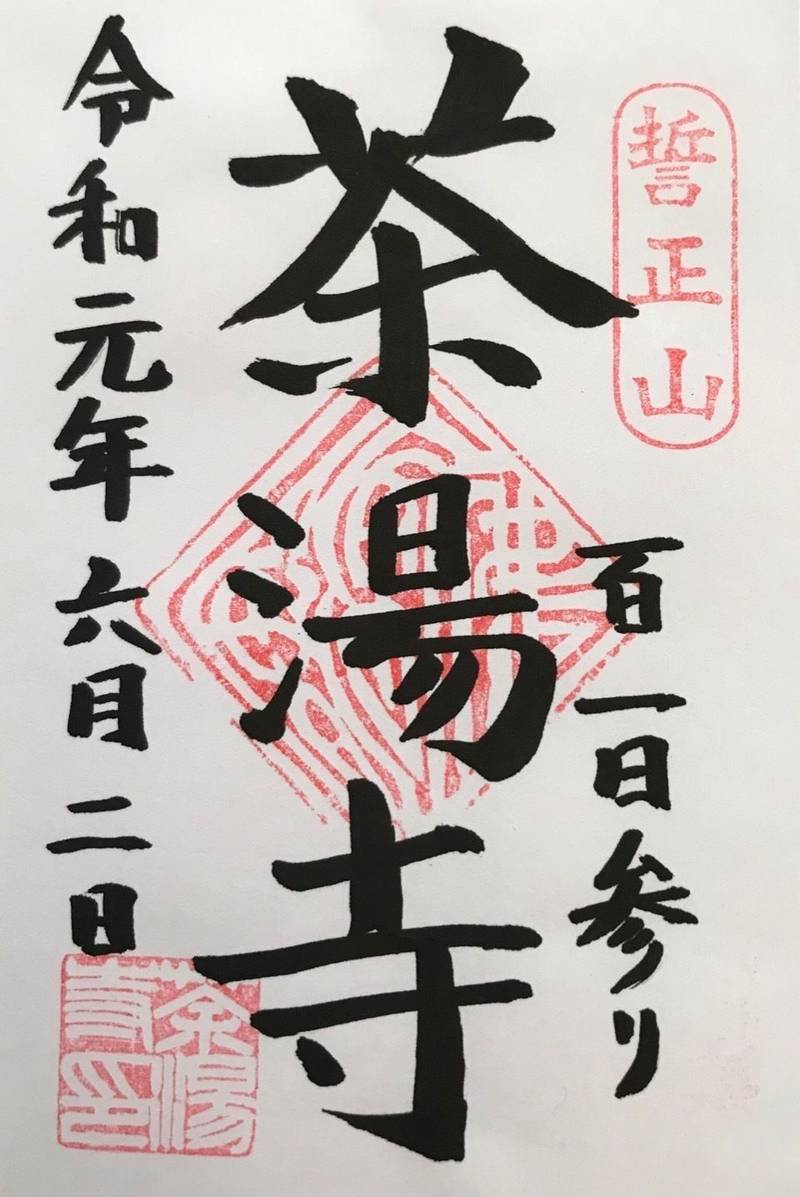 誓正山
百一日参り
茶湯寺
令和元年 六月 二日
茶湯寺印